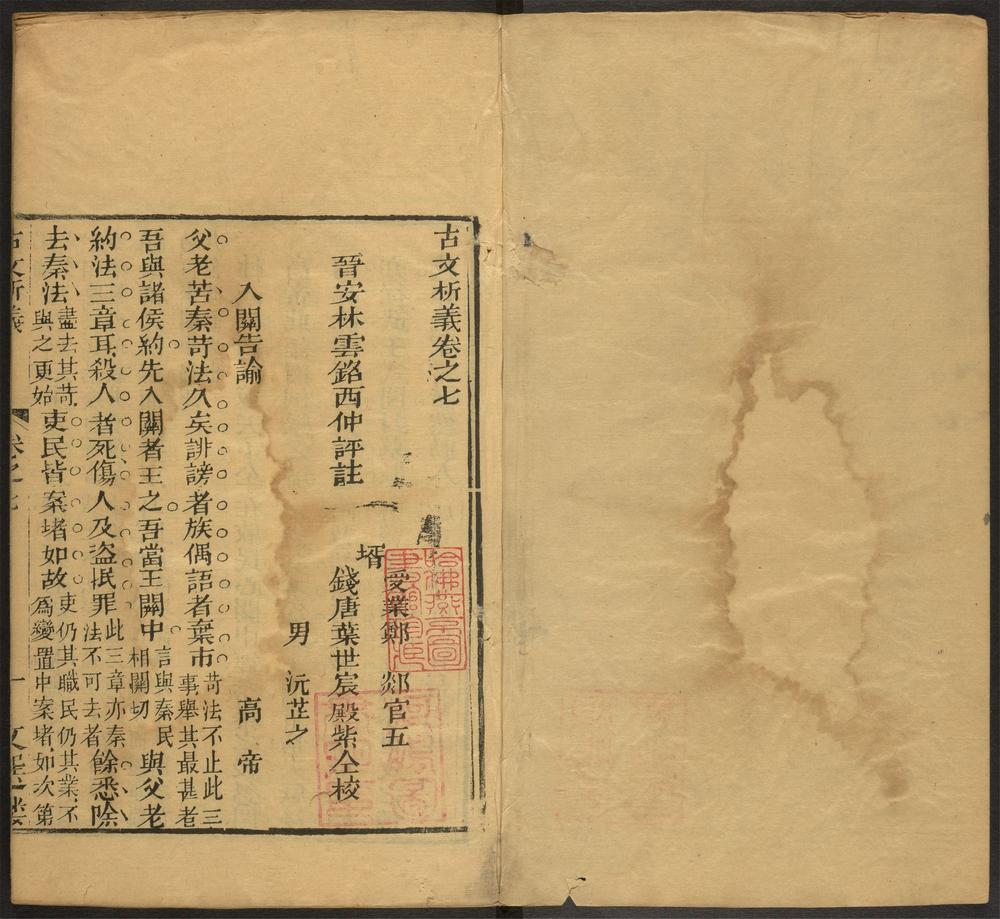 古文析義卷之七
受業鄭 郯官五
晉安林雲銘西仲評註
壻錢唐葉世宸殿紫仝校
男 沅芷之
入關告諭 高帝
父老苦秦苛法久矣誹謗者族偶語者棄市苛法不止此三事舉其最甚者
吾與諸侯約先入關者王之吾當王關中言與秦民相關切與父老
約法三章耳殺人者死傷人及盜抵罪此三章亦秦法不可去者餘悉除
去秦法盡去其苛與之更始吏民皆案堵如故吏仍其職民仍其業不為變置中案堵如次第
古文析義 卷之七 一 文 堂